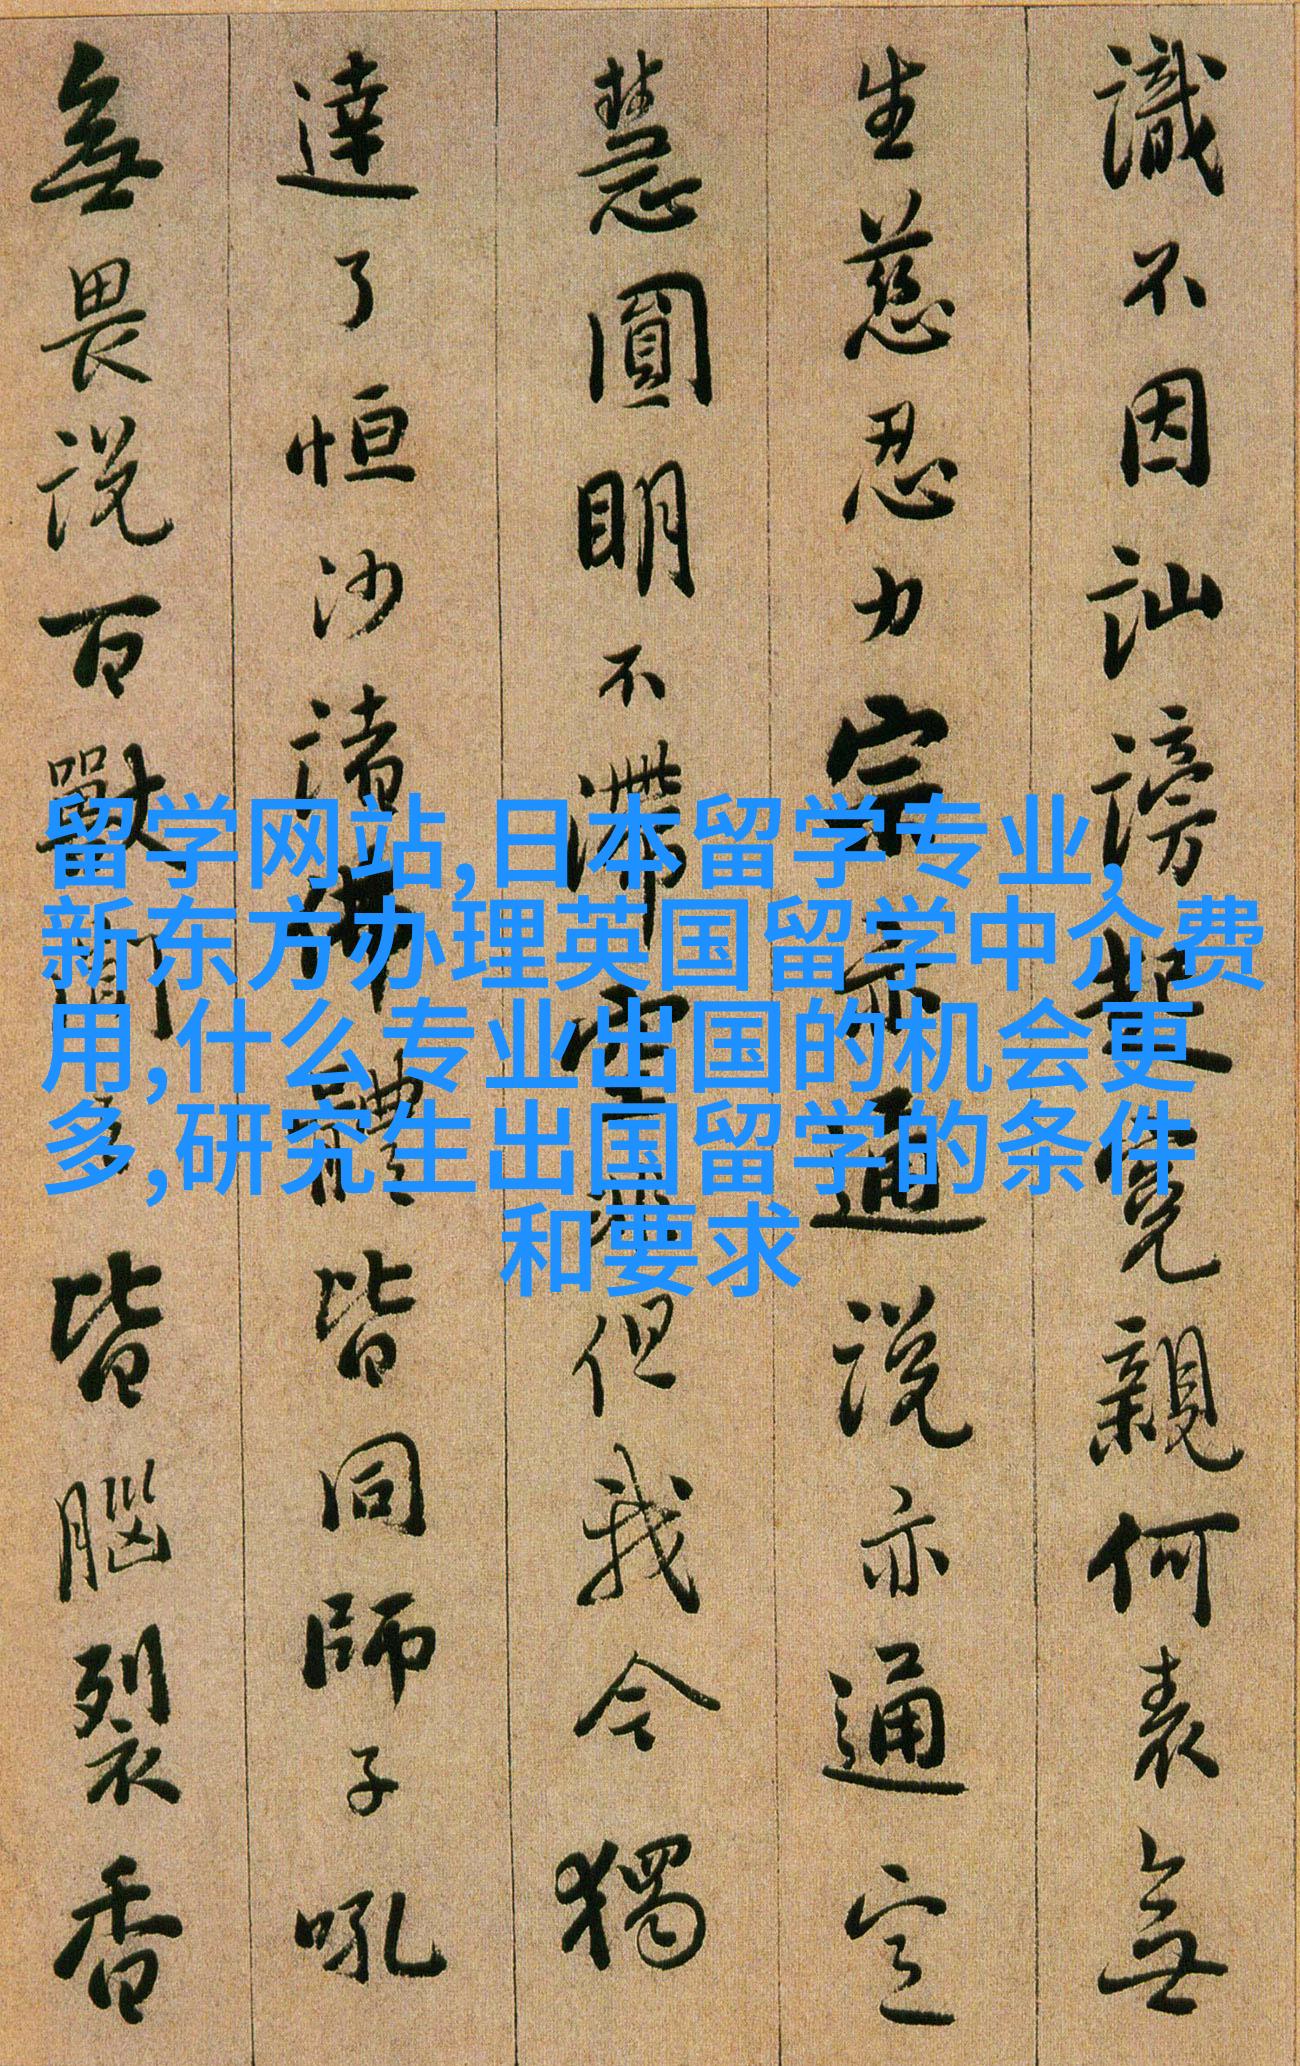 識不因訕謗起冤親何表無
生慈忍力宗亦通說亦通定
慧圓明不滯空但我今獨
達了恒沙諸佛體皆同師子吼
無畏說百獸聞皆腦裂香
留学网站,日本留学专业,
新东方办理英国留学中介费
用,什么专业出国的机会更
多,研究生出国留学的条件
和要求